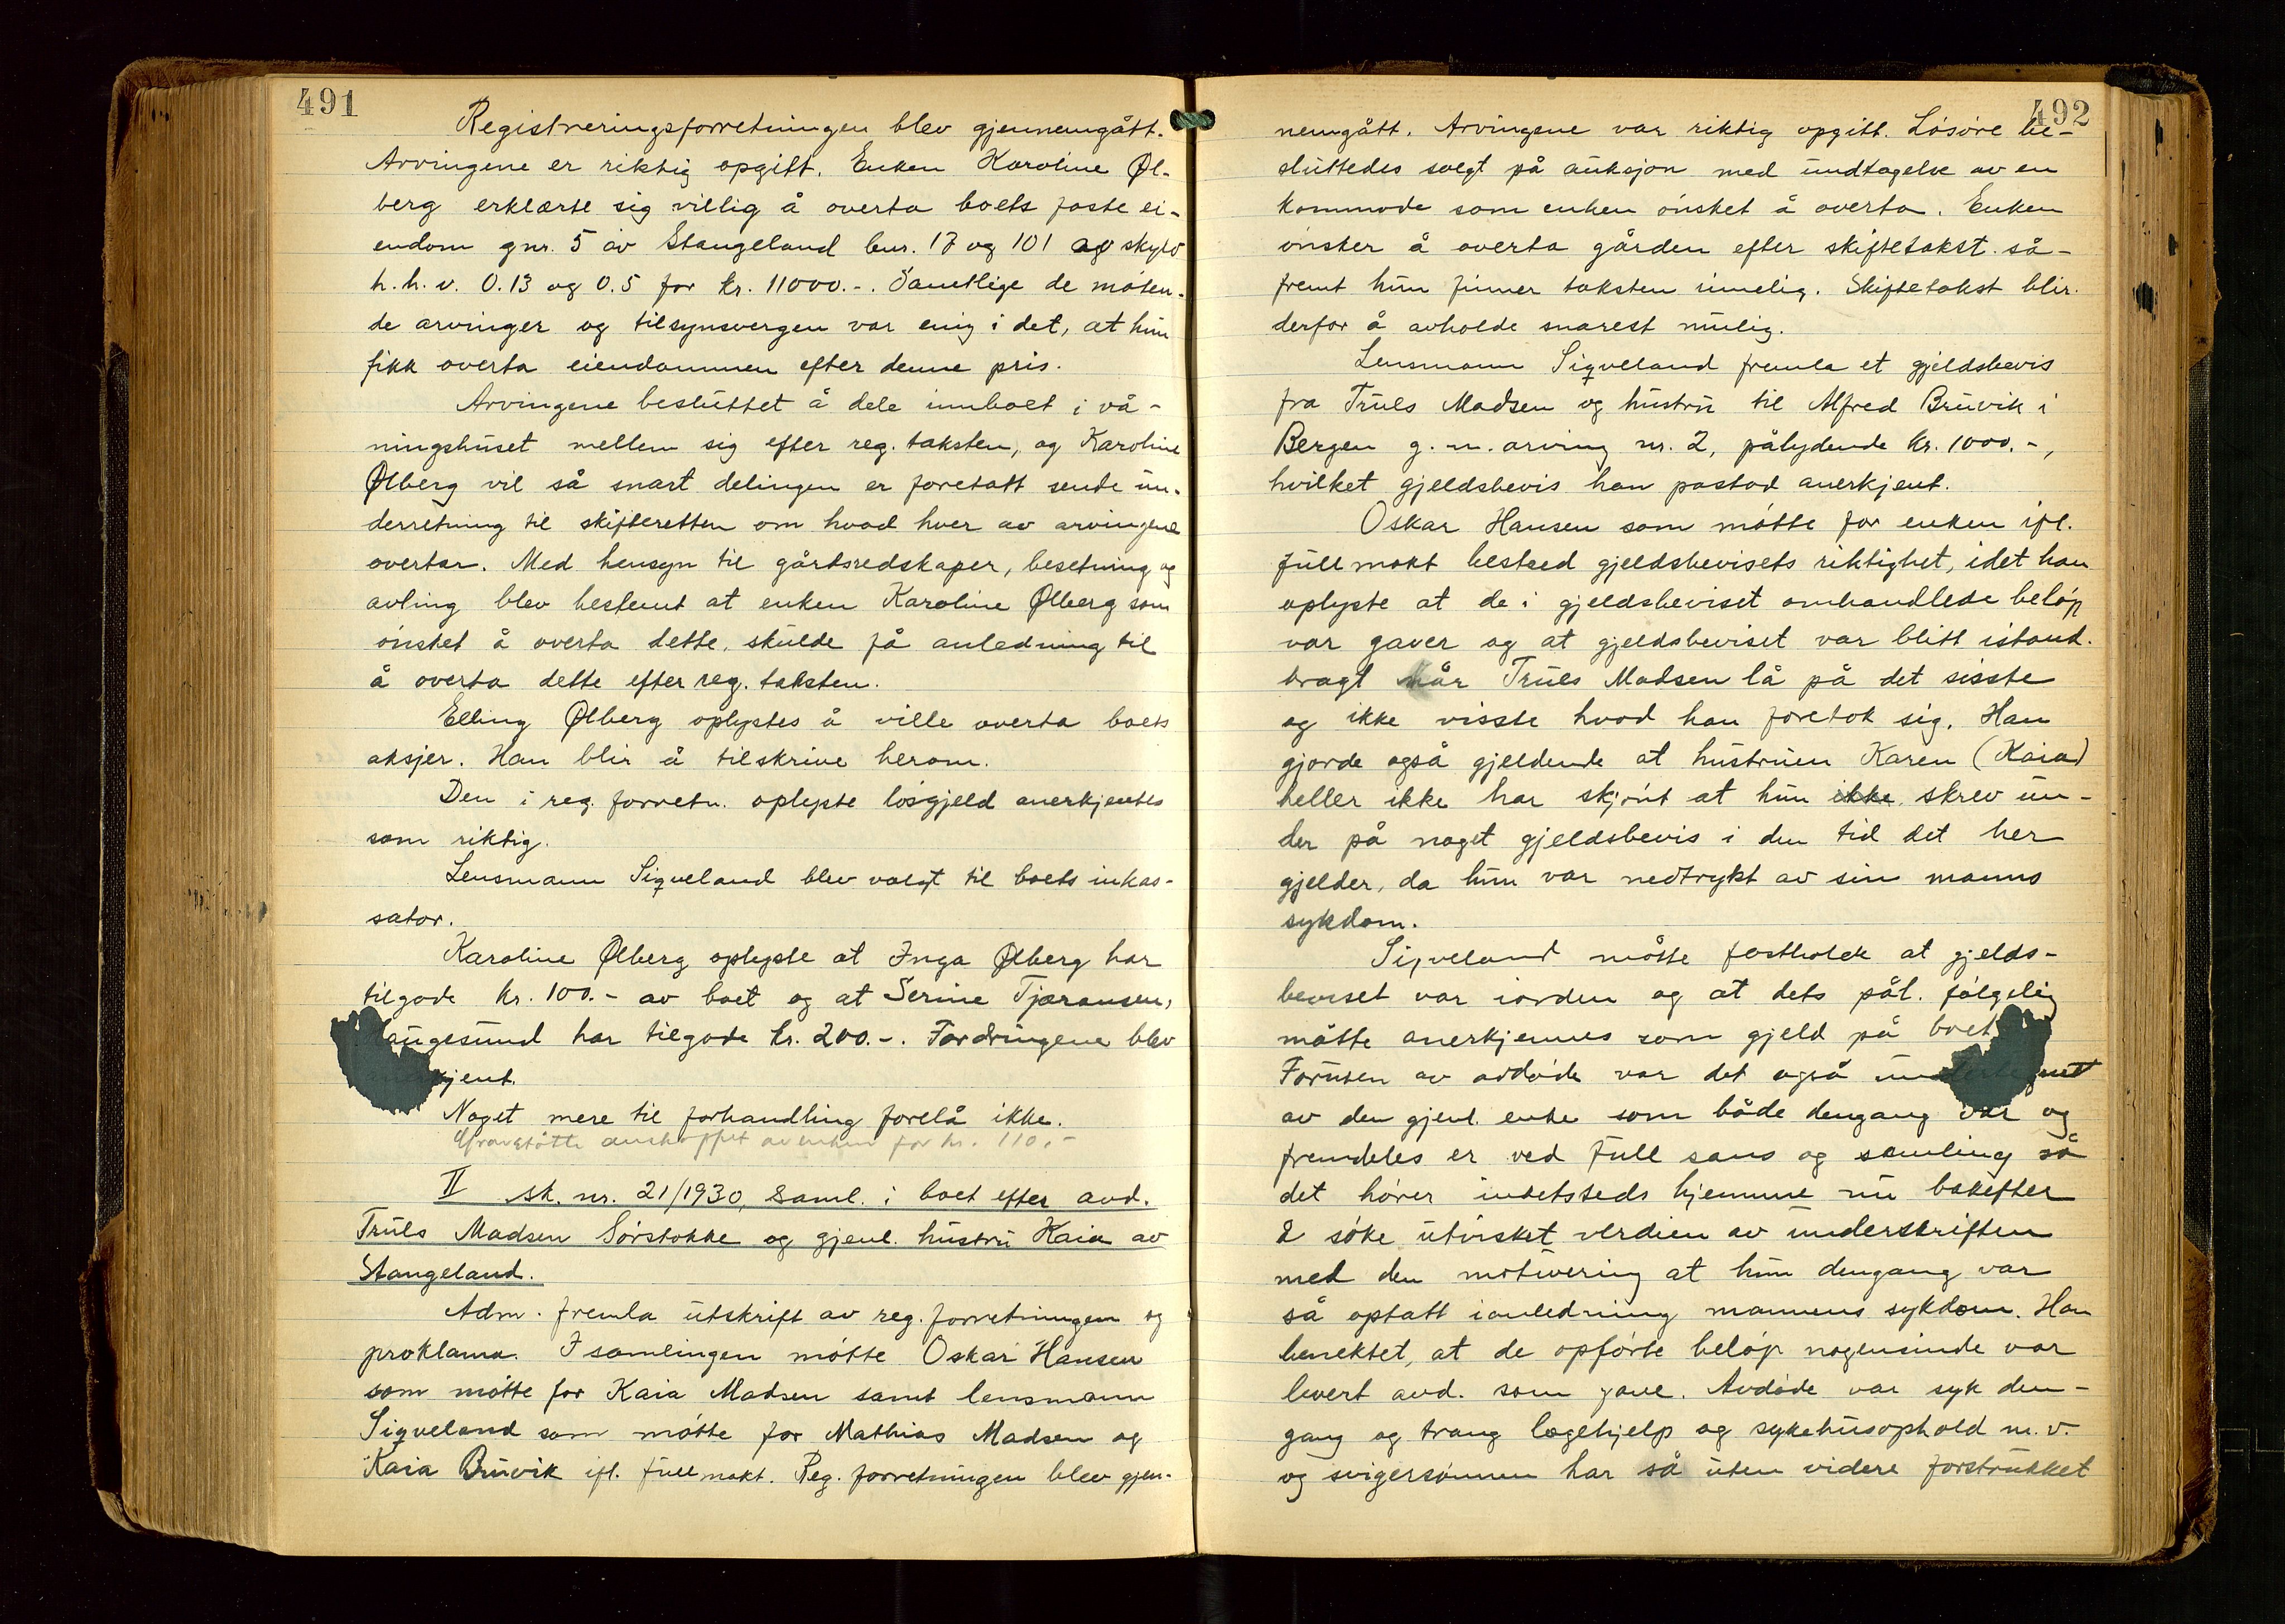 491
Registreringsforretningen blev gjennemgått.
Arvingene er riktig opgitt. Enken Karoline Øl-
berg erklærte sig villig å overta boets faste ei-
endom gnr. 5 av Stangeland bnr. 17 og 101 av skyld
h.h.v. 0.13 og 0.5 for kr. 11000.-. Samtlige de møten-
de arvinger og tilsynsvergen var enig i det, at hun
fikk overta eiendommen efter denne pris.
Arvingene besluttet å dele innboet i vå-
ningshuset mellem sig efter reg. taksten, og Karoline
Ølberg vil så snart delingen er foretatt sende un-
derretning til skifteretten om hvad hver av arvingene
overtar. Med hensyn til gårdsredskaper, besetning og
avling blev bestemt at enken Karoline Ølberg som
ønsket å overta dette, skulde få anledning til
å overta dette efter reg. taksten.
Elling Ølberg oplystes å ville overta boets
aksjer. Han blir å tilskrive herom.
Den i reg. forretn. oplyste løsgjeld anerkjentes
som riktig.
Lensmann Sigveland blev valgt til boets inkas-
sator.
Karoline Ølberg oplyste at Inga Ølberg har
tilgode kr. 100.- av boet og at Serine Tjæransen,
augesund har tilgode kr. 200.-. Fordringene blev
kjent.
Noget mere til forhandling forelå ikke.
Gravstøtte anskaffet av enken for kr. 110.-
II sk. nr. 21/1930, saml. i boet efter avd.
Truls Madsen Sørstokke og gjenl. hustru Kaia av
Stangeland.
Adm. fremla utskrift av reg. forretningen og
proklama. I samlingen møtte Oskar Hansen
som møtte for Kaia Madsen samt lensmann
Sigveland som møtte for Mathias Madsen og
Kaia Bruvik ifl. fullmakt. Reg. forretningen blev gjen-
492
nemgått. Arvingene var riktig opgitt. Løsøre be-
sluttedes solgt på auksjon med undtagelse av en
kommode som enken ønsket å overta. Enken
ønsker å overta gården efter skiftetakst så-
fremt hun finner taksten rimelig. Skiftetakst blir
derfor å avholde snarest mulig.
Lensmann Sigveland fremla et gjeldsbevis
fra Truls Madsen og hustru til Alfred Bruvik i
Bergen g.m. arving nr. 2, pålydende kr. 1000.-,
hvilket gjeldsbevis han påstod anerkjent.
Oskar Hansen som møtte for enken ifl.
fullmakt bestred gjeldsbevisets riktighet, idet han
oplyste at de i gjeldsbeviset omhandlede beløp
var gaver og at gjeldsbeviset var blitt istand-
bragt når Truls Madsen lå på det sisste
og ikke visste hvad han foretok sig. Han
gjorde også gjeldende at hustruen Karen (Kaia)
heller ikke har skjønt at hun ikke skrev un-
der på noget gjeldsbevis i den tid det her
gjelder, da hun var nedtrykt av sin manns
sykdom.
Sigveland måtte fastholde at gjelds-
beviset var iorden og at dets pål. følgelig
måtte anerkjennes som gjeld på boet
Foruten av avdøde var det også
av den gjenl. enke som både dengang var og
fremdeles er ved full sans og samling så
det hører intetsteds hjemme nu bakefter
å søke utvisket verdien av underskriften
med den motivering at hun dengang var
så optatt ianledning mannens sykdom. Han
benektet, at de opførte beløp nogensinde var
levert avd. som gave. Avdøde var syk den-
gang og trang lægehjelp og sykehusophold m.v.
og svigersønnen har så uten videre forstrukket